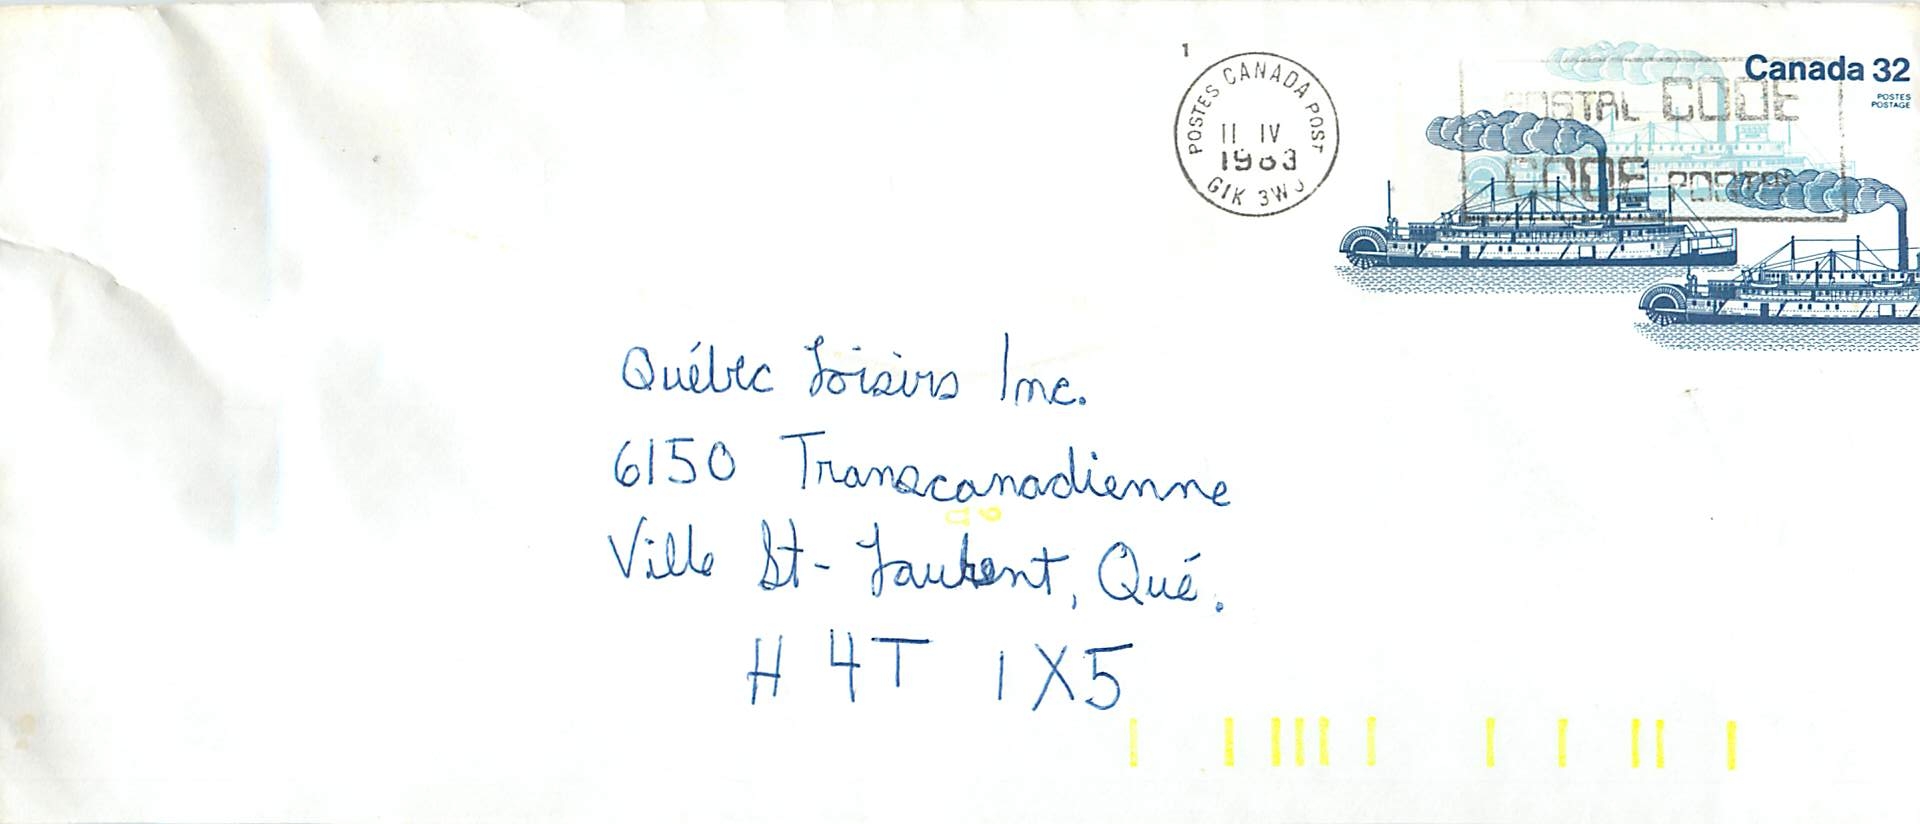 1
POSTES CANADA POST
11 IV
1983
G1K 3W
Canada 32
POSTES
POSTAGE
POSTAL CODE
CODE POSTAL
Québec Loisirs Inc.
6150 Transcanadienne
Ville St-Laurent, Qué.
H4T 1X5